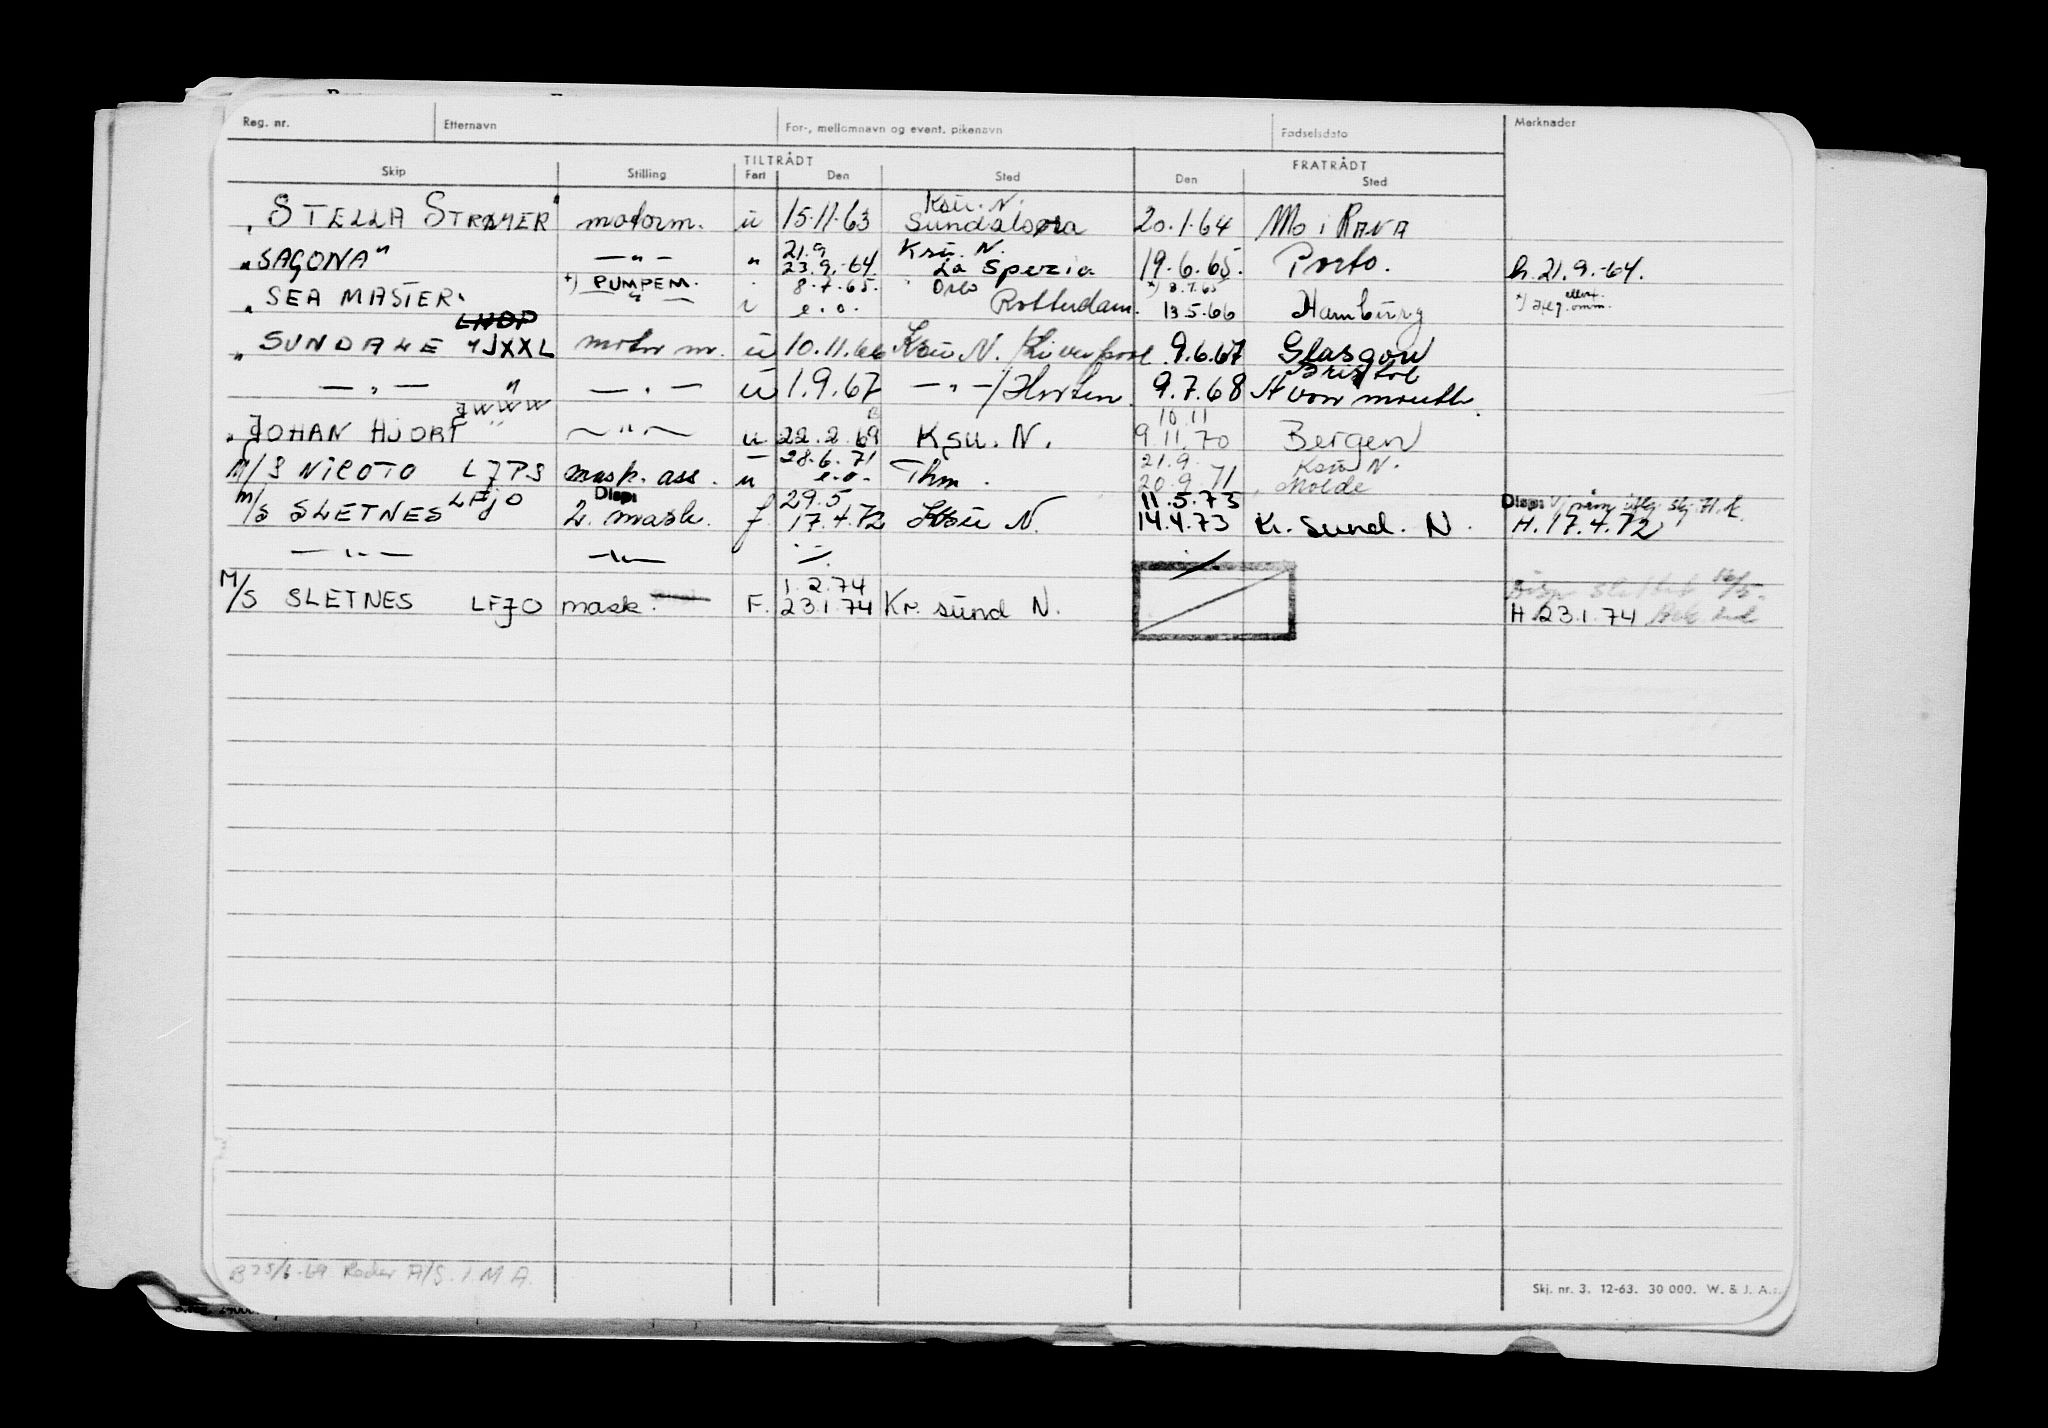 Reg. nr. Etternavn For-, mellomnavn og event. pikenavn Fødselsdato Merknader
TILTRÅDT FRATRÅDT
Skip Stilling Fart Den Sted Den Sted
Ksu. N.
"STELLA STRØMER" motorm. u 15.11.63 Sundalsøra 20.1.64 Mo i RANA
21.9 Ksu. N.
"SAGONA" — " — " 23.9.-64. La Spezia 19.6.65. Porto. h. 21.9.-64.
*) PUMPEM. 8.7.65. Oslo *) 8.7.65
"SEA MASTER" — " — u e.o. Rotterdam. 13.5.66 Hamburg *)
LHOP
"SUNDALE" JXXL motor m. u 10.11.66 Ksu N. / Liverpool 9.6.67 Glasgow
Bristol
— " — " — " — u 1.9.67 — " — / Horten 9.7.68 Avonmouth.
JWWW 10.11
"JOHAN HJORT — " — u 22.2.69 Ksu. N. 9.11.70 Bergen
28.6.71 21.9. Ksu N.
M/S NICOTO LJPS mask. ass. u e.o. Thm. 20.9.71 Molde
Disp. 29.5 11.5.73 Disp.
M/S SLETNES LFJO 2. mask. f 17.4.72 Ksu N. 14.4.73 Kr. sund. N. H. 17.4.72
— " — — " — -/-
1.2.74
M/S SLETNES LFJO mask. F. 23.1.74 Kr. sund N. H 23.1.74
Reder A/S. I. M A.
Skj. nr. 3. 12-63. 30 000. W. & J. A.s.